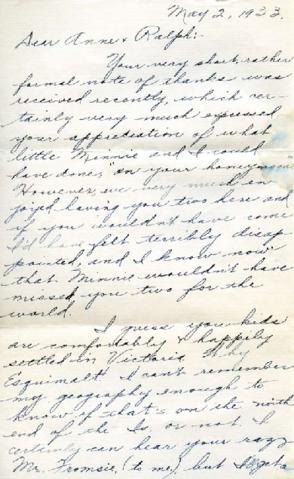 May 2, 1933.
Dear Anne & Ralph:-
Your very short, rather
formal note of thanks was
received recently, which cer-
tainly very much expressed
your appreciation of what
little Minnie and I could
have done, on your honeymoon
However, we very much en
joyed having you two here and
if you wouldn't have come
I'd have felt terribly disap
pointed, and I know now
that Minnie wouldn't have
missed you two for the
world.
I guess you kids
are comfortably & happily
settled in Victoria. Why
Esquimalt? I can't remember
my geography enough to
know if that's on the north
end of the Is. or not. I
certainly can hear your
Mr. Fromsie, (to me) but